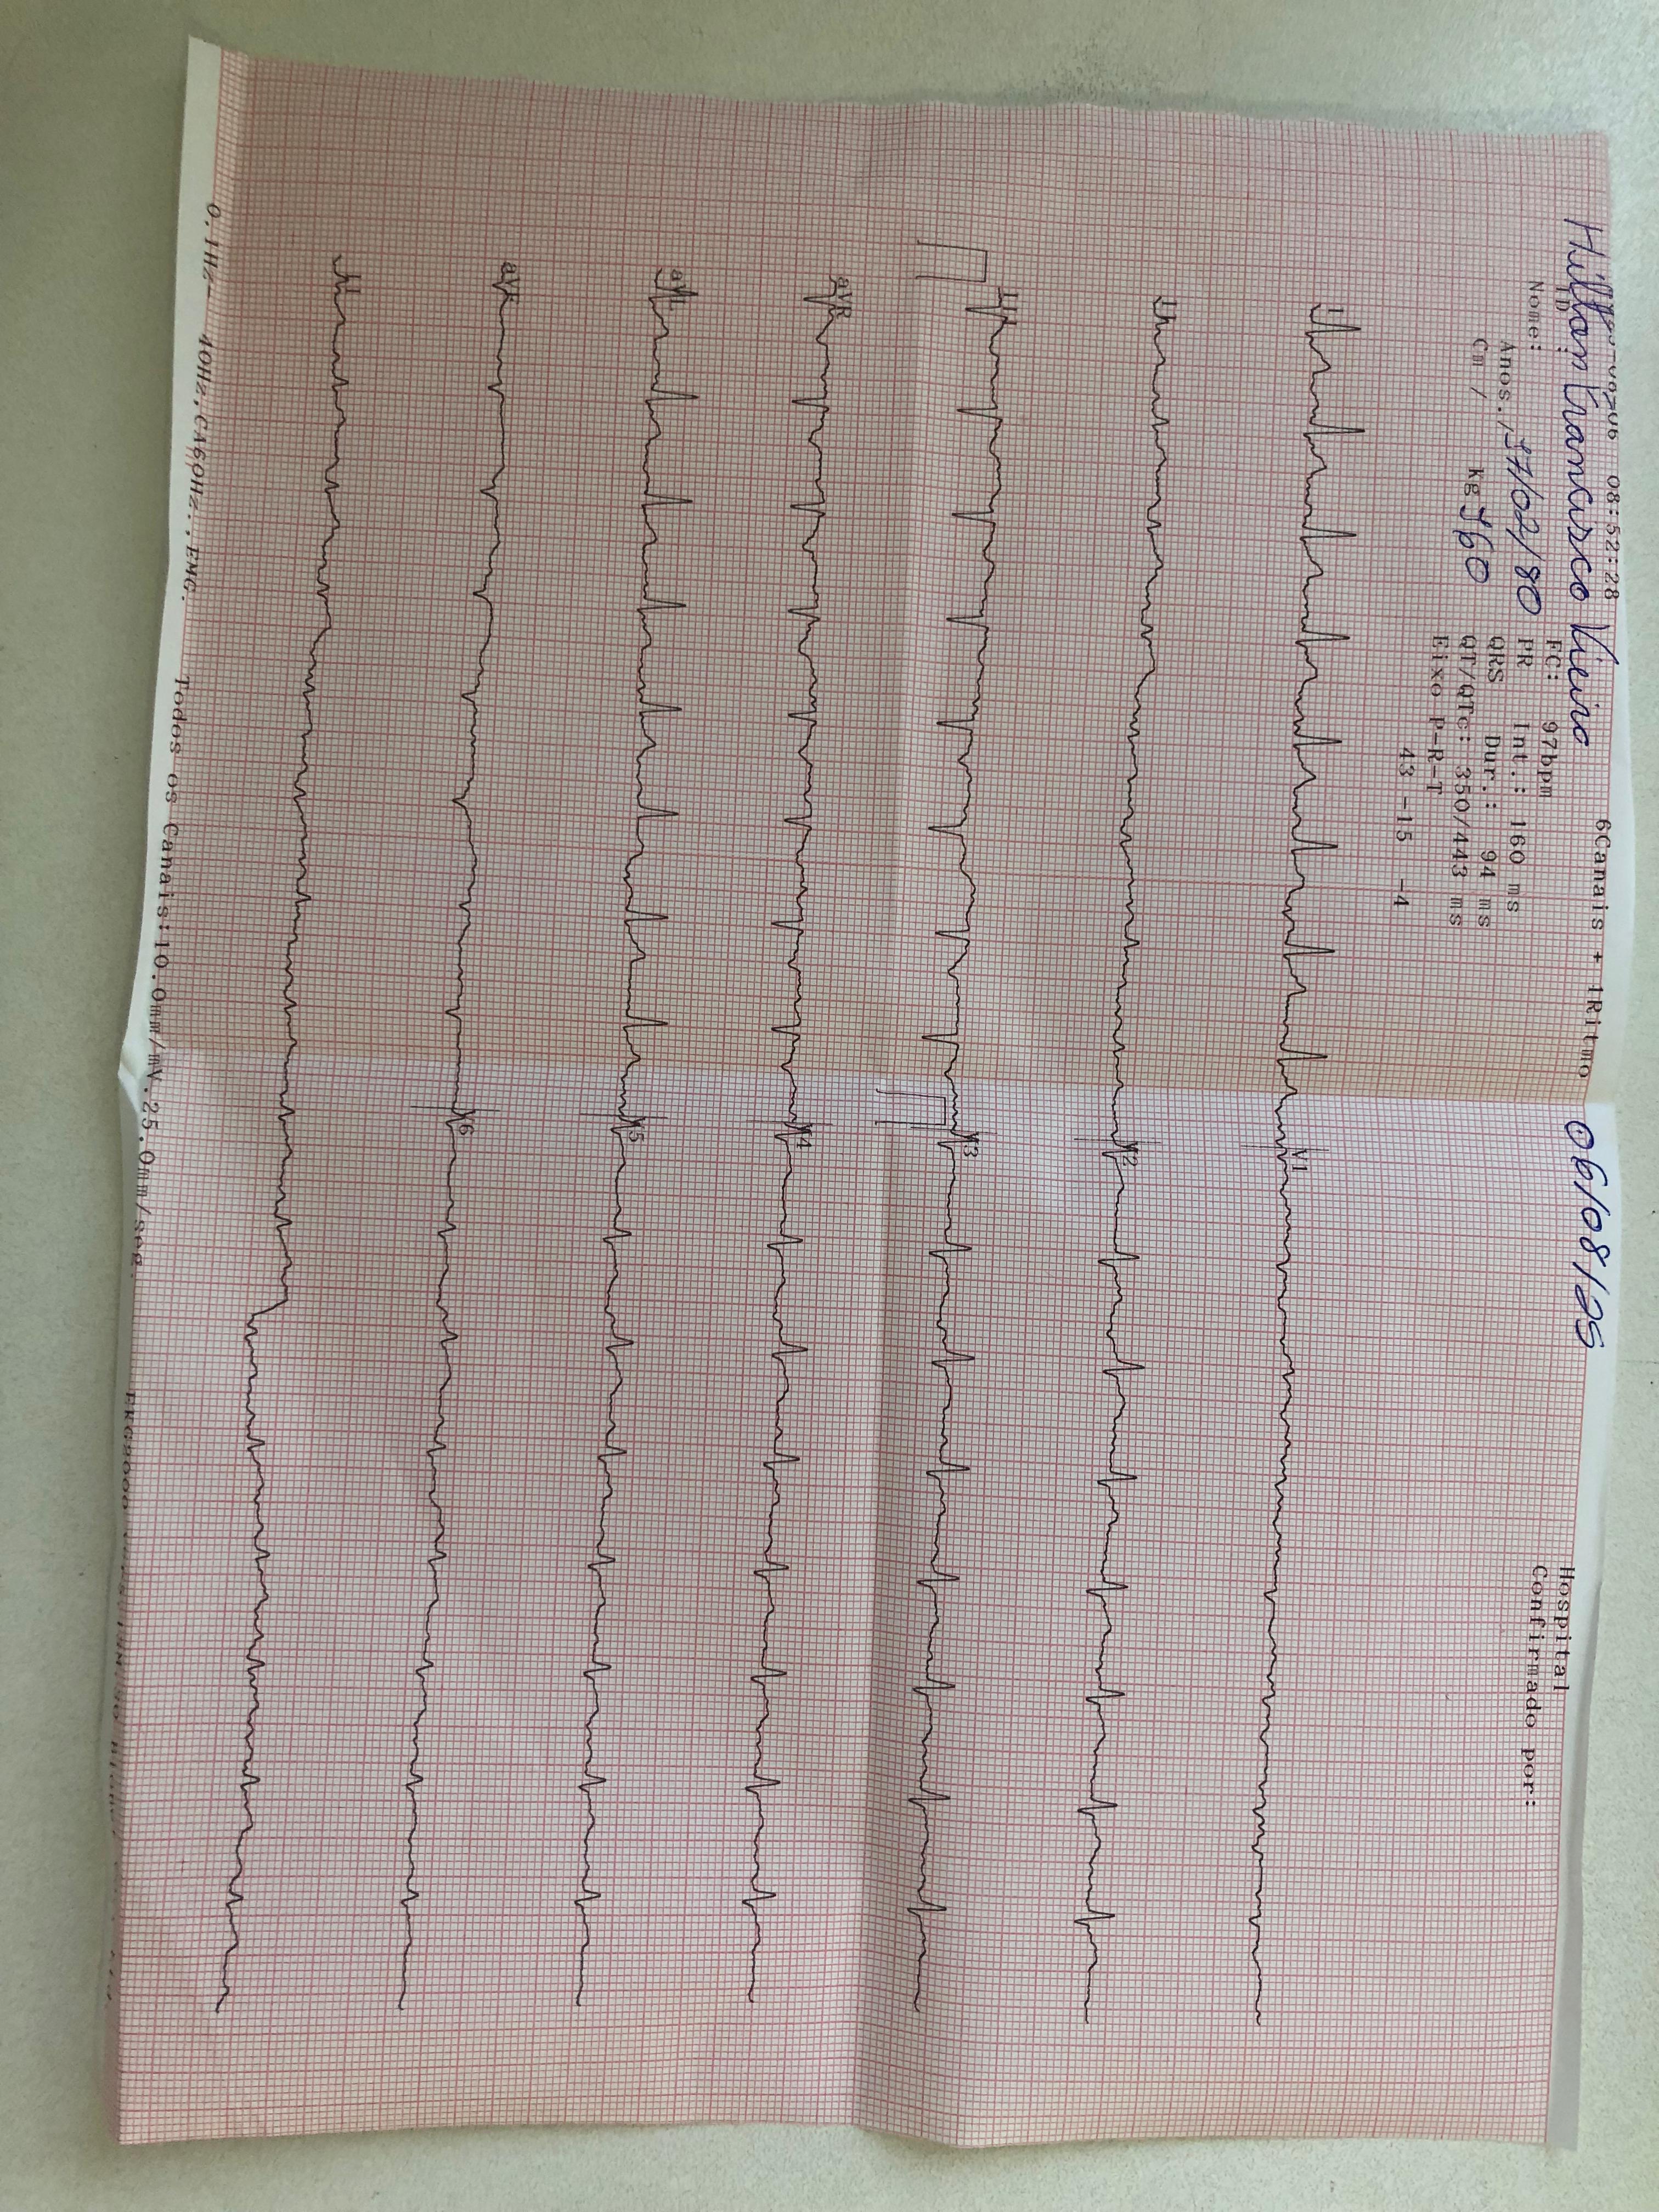 08:52:28 6Canais + 1Ritmo
Hillan Francisco Vieira 06/08/25
ID:
Nome:
Anos./ 17/02/80
Cm / kg 160
FC: 97bpm
PR Int.: 160 ms
QRS Dur.: 94 ms
QT/QTc: 350/443 ms
Eixo P-R-T
43 -15 -4
Hospital
Confirmado por:
I V1
II V2
III V3
aVR V4
aVL V5
aVF V6
II
0.1Hz- 40Hz,CA60Hz.,EMG. Todos os Canais:10.0mm/mV.25.0mm/seg.